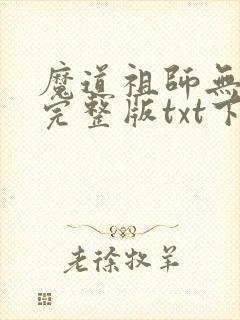 魔道祖師無
完整版txt下
老徐牧羊